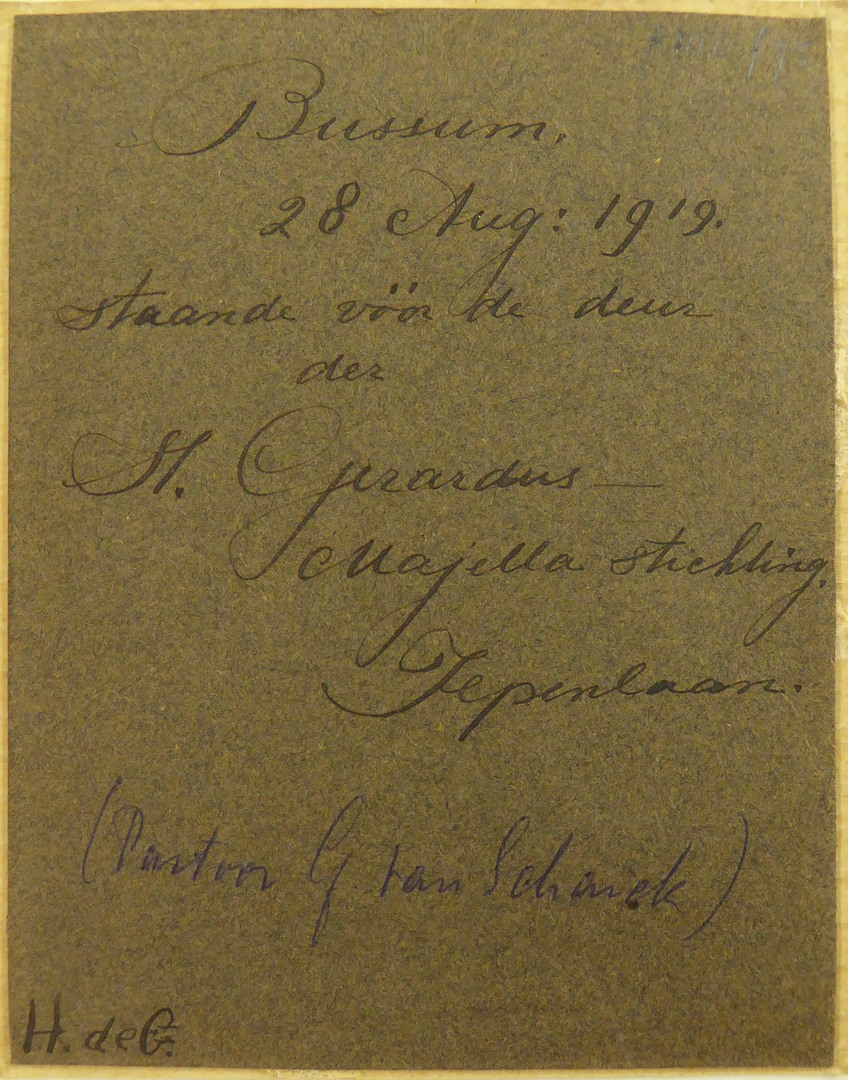 Bussum.
28 Aug: 19'19.
staande vöör de deur
der
St. Gerardus—
Majella stichting.
Iepenlaan.
(Pastoor G. van Schaick)
H. de G.